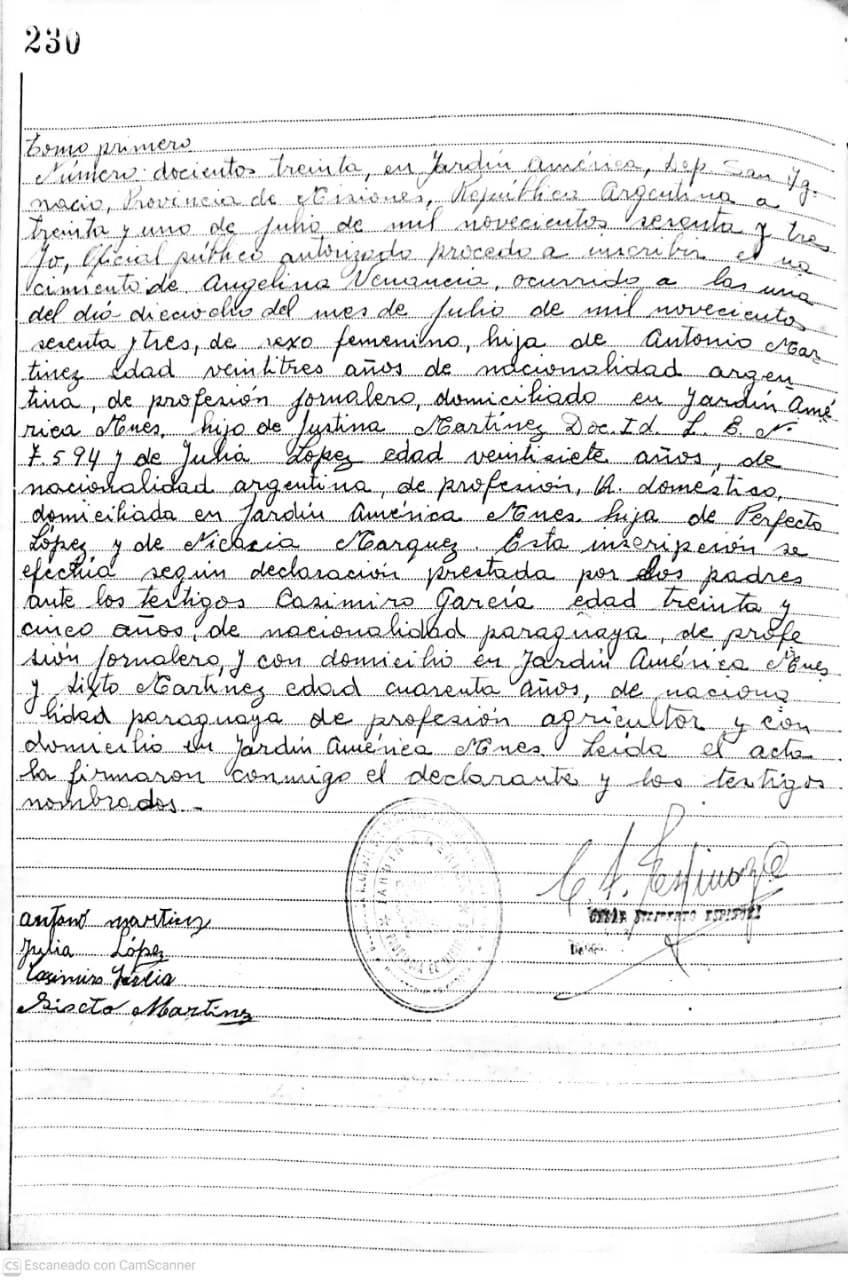 230
Tomo primero
Número docientos treinta, en Jardín América, Dep. San Yg-
nacio, Provincia de Misiones, República Argentina a
treinta y uno de Julio de mil novecientos sesenta y tres
Yo, Oficial público autorizado procedo a inscribir el na
cimiento de Angelina Venancia, ocurrido a las una
del día dieciocho del mes de Julio de mil novecientos
sesenta y tres, de sexo femenino, hija de Antonio Mar
tínez edad veintitres años de nacionalidad argen-
tina, de profesión jornalero, domiciliado en Jardín Amé-
rica Mnes. hijo de Justina Martínez Doc. Id. L. E. Nº
7.594 y de Julia López edad veintisiete años, de
nacionalidad argentina, de profesión, Q. doméstico,
domiciliada en Jardín América Mnes. hija de Perfecto
López y de Nicacia Marquez. Esta inscripción se
efectúa según declaración prestada por los padres
ante los testigos Casimiro García edad treinta y
cinco años, de nacionalidad paraguaya, de profe
sión jornalero, y con domicilio en Jardín América Mnes
y Sixto Martínez edad cuarenta años, de naciona
lidad paraguaya de profesión agricultor y con
domicilio en Jardín América Mnes. Leída el acta
la firmaron conmigo el declarante y los testigos
nombrados.-
C A. Espinoza
Antono Martinz
Julia López
Casimiro
Siscto Martinez
JARDIN AMERICA
CS Escaneado con CamScanner